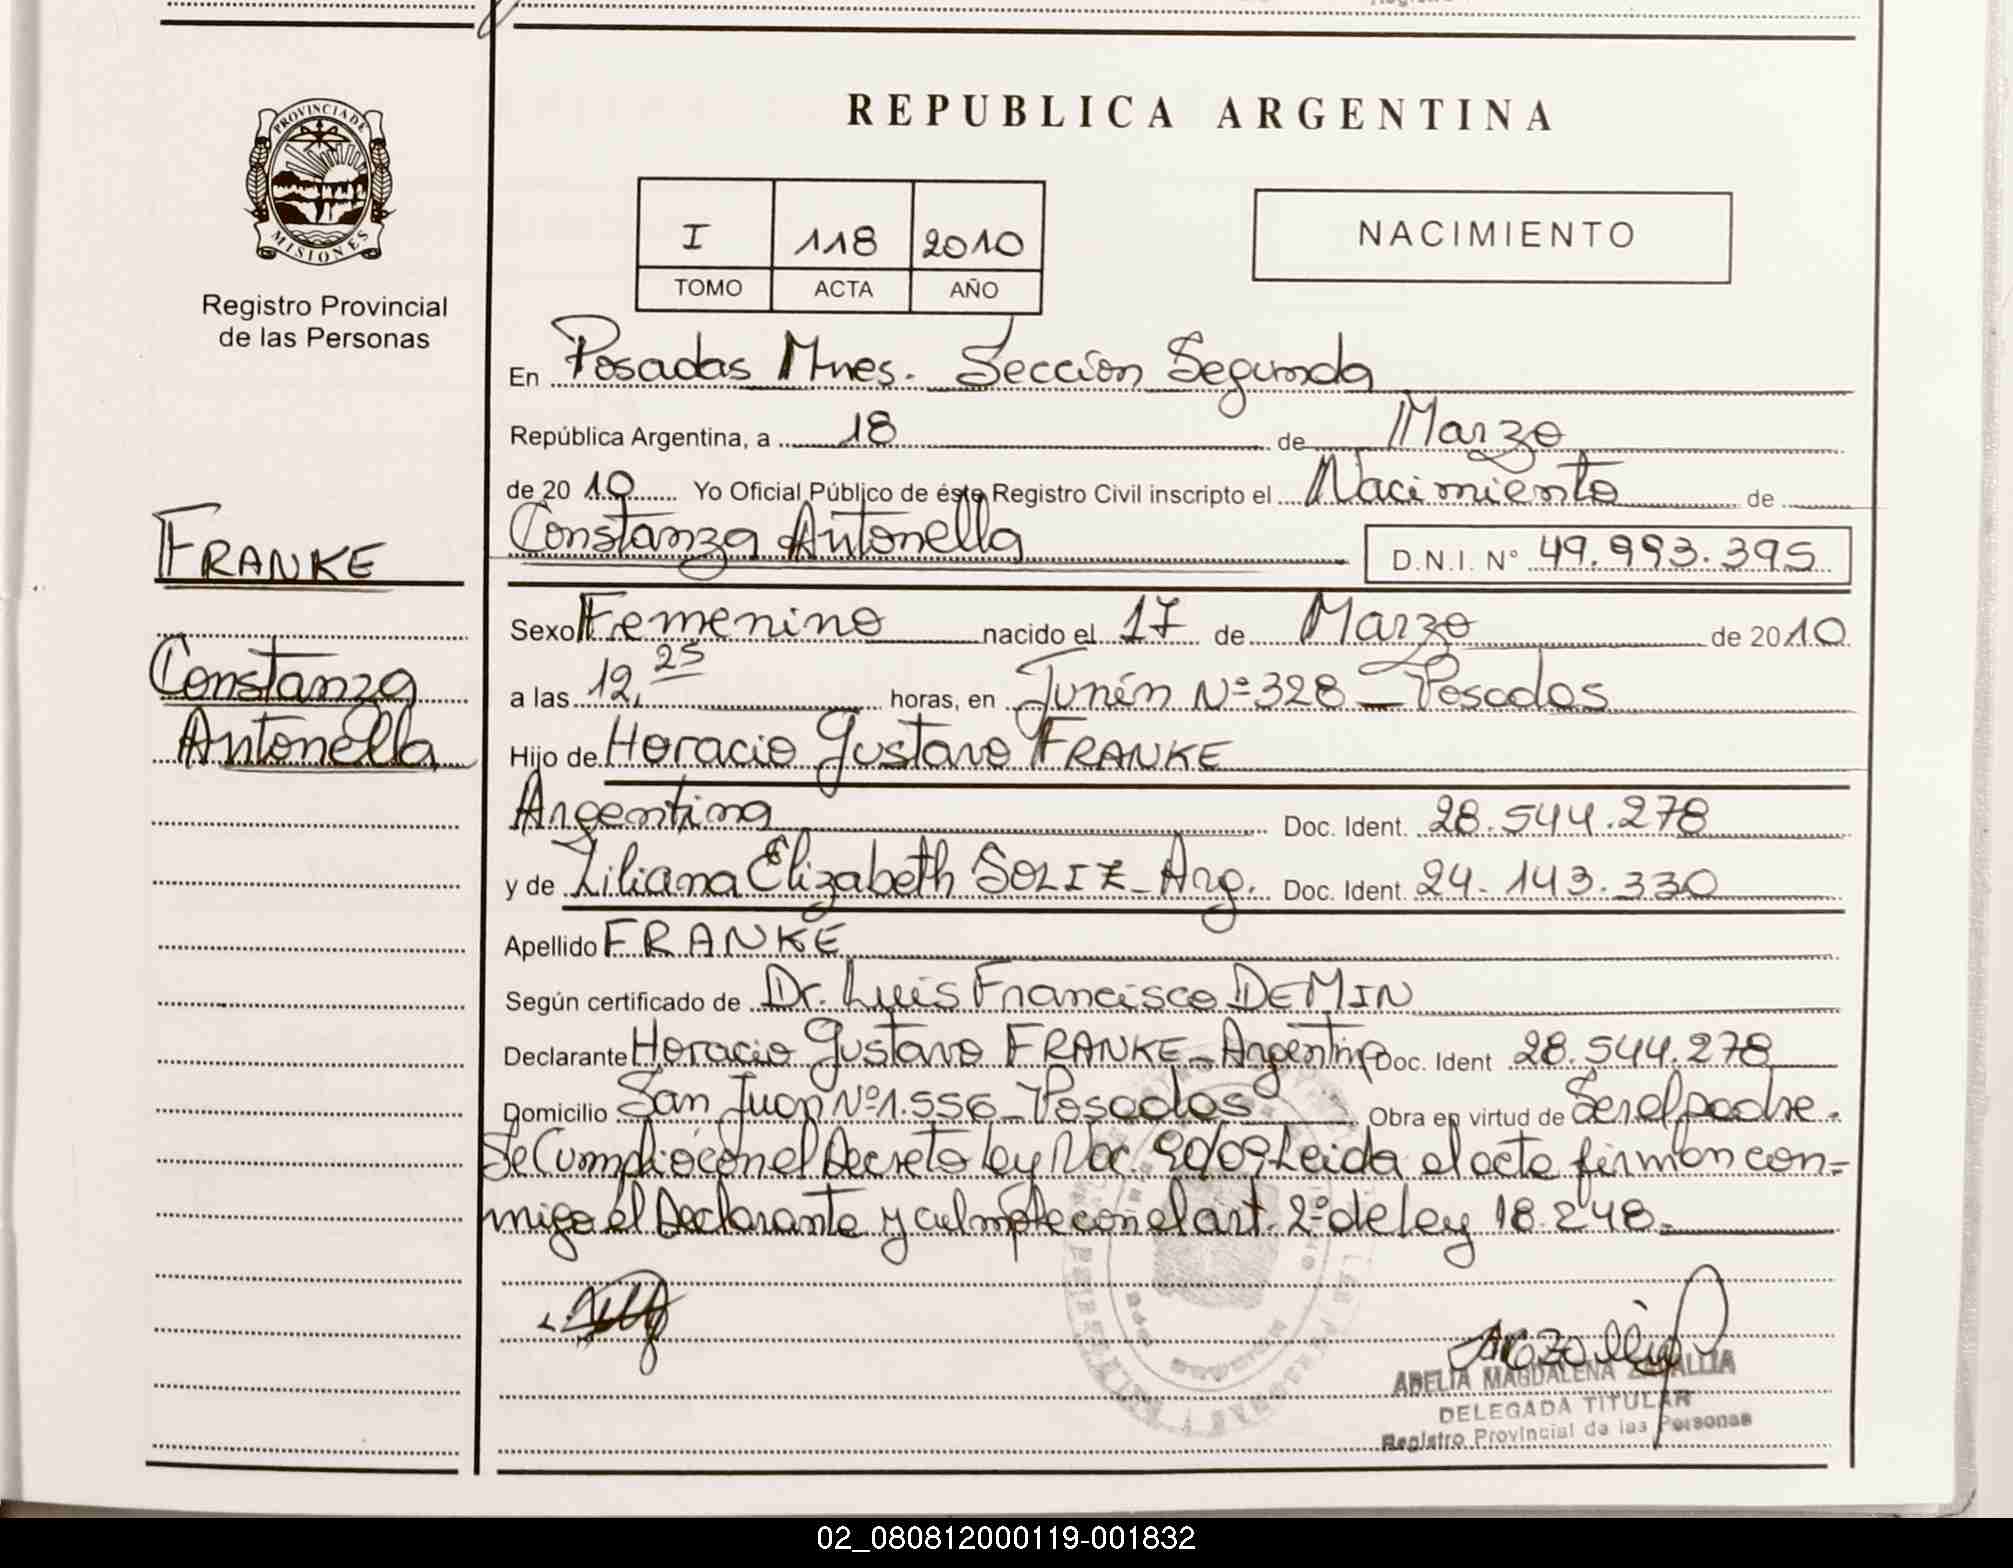 REPUBLICA ARGENTINA
PROVINCIA DE
MISIONES
Registro Provincial
de las Personas
I 118 2010
TOMO ACTA AÑO
NACIMIENTO
En Posadas Mnes. Sección Segunda
República Argentina, a 18 de Marzo
de 2010 Yo Oficial Público de éste Registro Civil inscripto el Nacimiento de
Constanza Antonella D.N.I. Nº 49.993.395
FRANKE
Constanza
Antonella
Sexo Femenino nacido el 17 de Marzo de 2010
a las 12,25 horas, en Junín Nº 328 _ Posadas
Hijo de Horacio Gustavo FRANKE
Argentina Doc. Ident. 28.544.278
y de Liliana Elizabeth SOLIZ _ Arg. Doc. Ident. 24.143.330
Apellido FRANKE
Según certificado de Dr. Luis Francisco DEMIN
Declarante Horacio Gustavo FRANKE _ Argentino Doc. Ident 28.544.278
Domicilio San Juan Nº 1.556 _ Posadas Obra en virtud de Ser el padre.
Se Cumplió con el Decreto ley Nac. 90/09, Leida el acta firman con=
migo el Declarante y culmple con el art. 2º de ley 18.248.
ABELIA MAGDALENA
DELEGADA TITULAR
Registro Provincial de las Personas
02_080812000119-001832